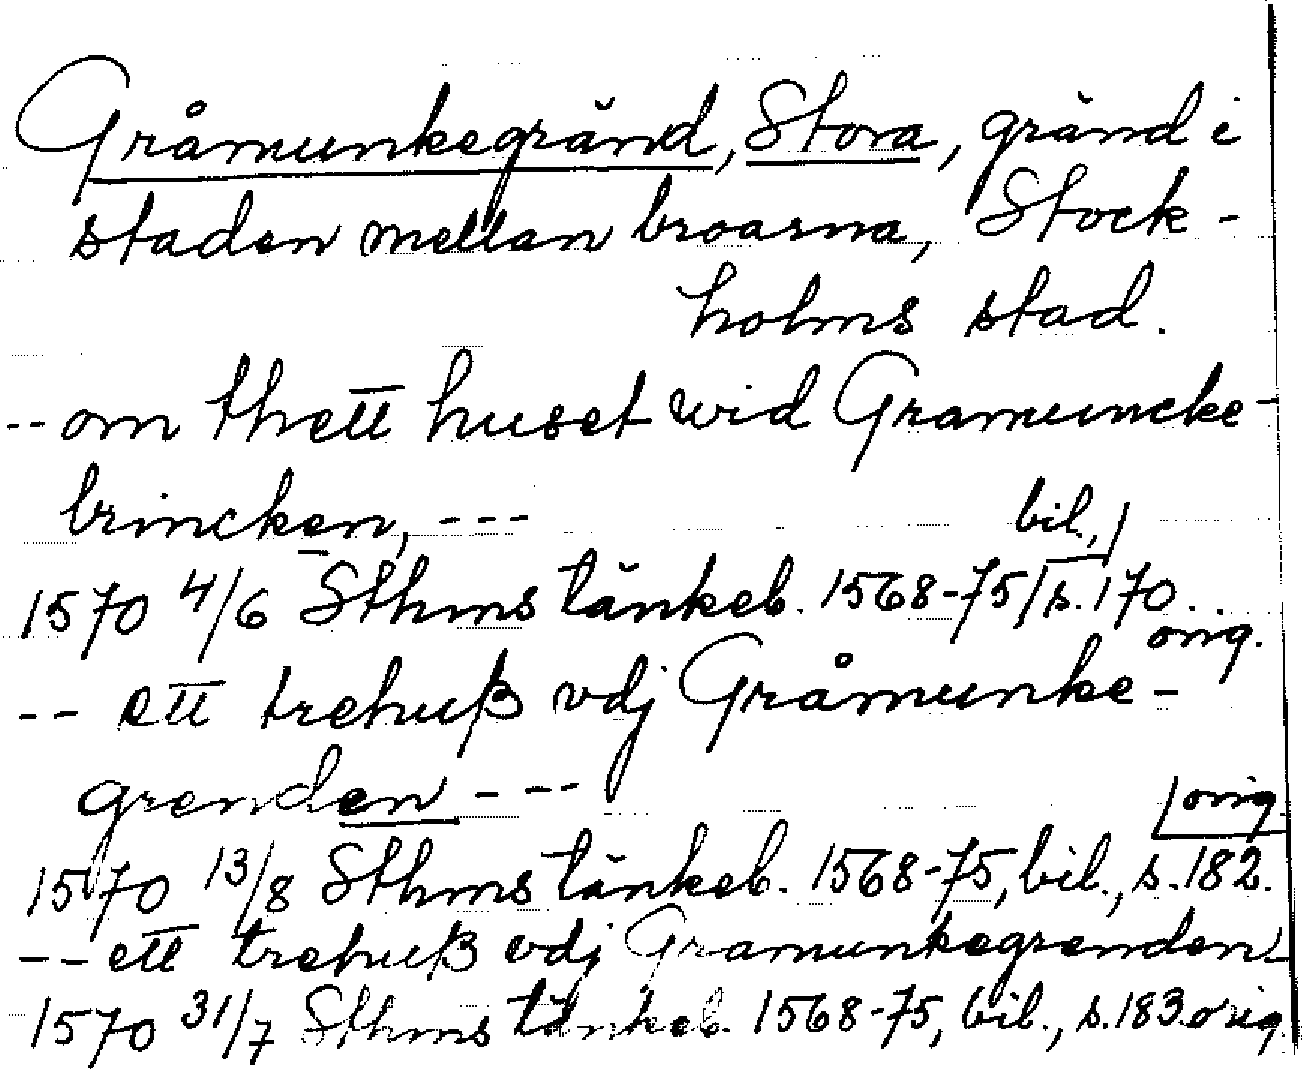 Gråmunkegränd, Stora, gränd i
staden mellan broarna, Stock-
holms stad.
-- om thett huset wid Gramuncke-
brincken, ---
bil.,
1570 4/6 Sthms tänkeb. 1568-75/s. 170
orig.
-- ett trehuß vdj Gråmunke-
grenden ---
orig
1570 13/8 Sthms tänkeb. 1568-75, bil., s. 182.
-- ett trehuß vdj Gramunkegrenden
1570 31/7 Sthms tänkeb. 1568-75, bil., s. 183 orig.